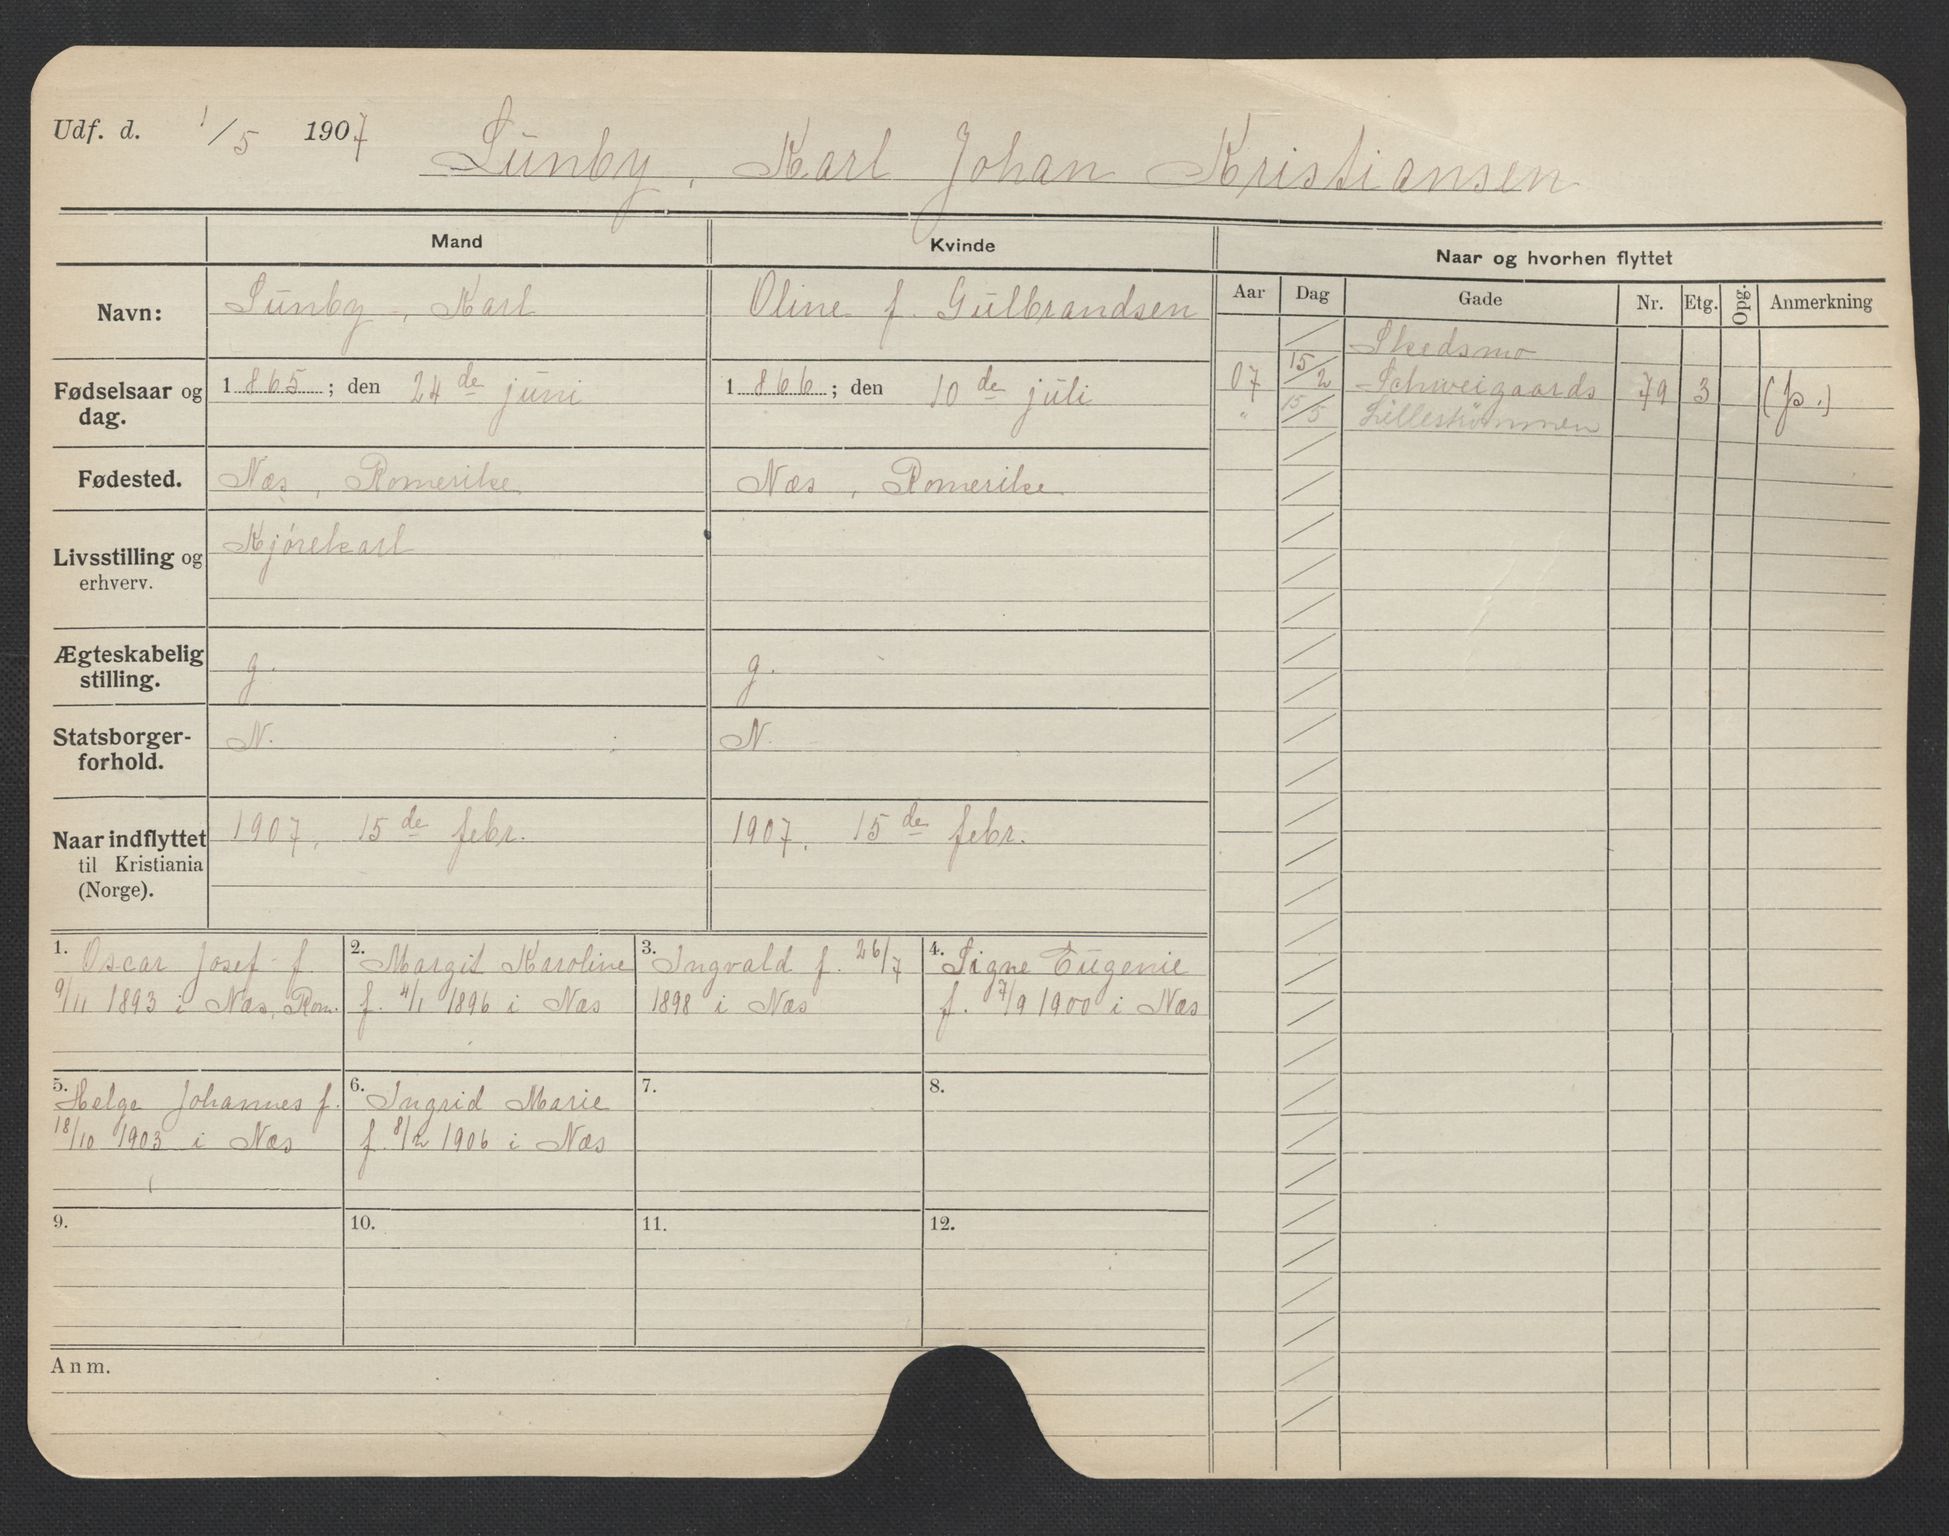 Udf. d. 1/5 1907 Sunby, Karl Johan Kristiansen
Mand Kvinde Naar og hvorhen flyttet
Navn: Sunby, Karl Oline f. Gulbrandsen
Aar Dag Gade Nr. Etg. Opg. Anmerkning
Skedsmo
07 15/2 Schweigaards 79 3 (p.)
" 15/5 Lilleströmmen
Fødselsaar og dag. 1865; den 24de juni 1866; den 10de juli
Fødested. Næs, Romerike Næs, Romerike
Livsstilling og erhverv. Kjørekarl
Ægteskabelig stilling. g. g.
Statsborger-
forhold. N. N.
Naar indflyttet til Kristiania (Norge). 1907, 15de febr. 1907, 15de febr.
1. Oscar Josef f
9/11 1893 i Næs, Rom.
2. Margit Karoline
f. 4/1 1896 i Næs
3. Ingvald f. 26/7
1898 i Næs
4. Signe Eugenie
f. 7/9 1900 i Næs
5. Helge Johannes f.
18/10 1903 i Næs
6. Ingrid Marie
f. 8/2 1906 i Næs
7.
8.
9.
10.
11.
12.
Anm.